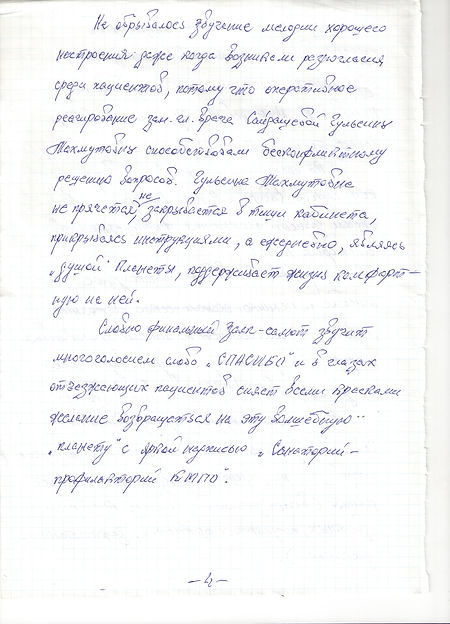 Не обрывалось звучание мелодии хорошего
настроения даже когда возникали разногласия
среди пациентов, потому что оперативное
реагирование зам. гл. врача Сайдашевой Гульсины
Махмутовны способствовали бесконфликтному
решению вопросов. Гульсина Махмутовна
не прячется, не закрывается в тиши кабинета,
прикрываясь инструкциями, а ежедневно, являясь
„душой" Планеты, поддерживает жизнь комфорт-
ную на ней.
Словно финальный залп-салют звучит
многоголосием слово „СПАСИБО" и в глазах
отъезжающих пациентов сияет всеми красками
желание возвращаться на эту волшебную
„планету" с яркой надписью „Санаторий-
профилакторий КМПО".
-4-